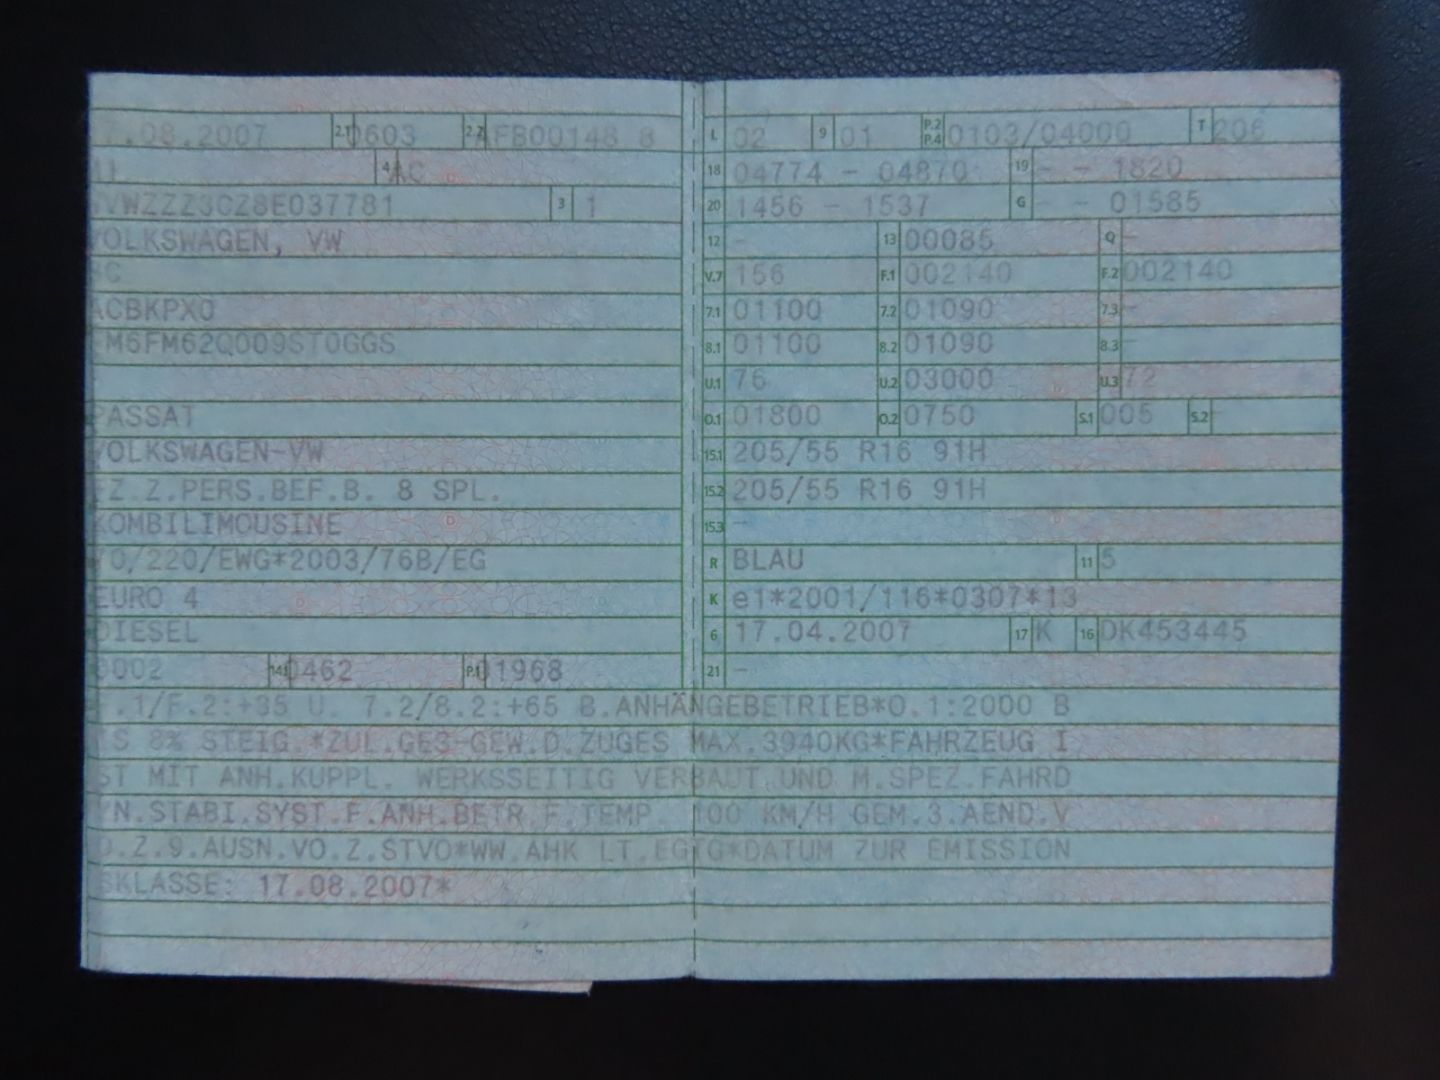 .08.2007 2.1 0603 2.2 AFB00148 8
4 AC
VWZZZ3CZ8E037781 3 1
VOLKSWAGEN, VW
3C
ACBKPX0
FM6FM62Q009ST0GGS
PASSAT
VOLKSWAGEN-VW
FZ.Z.PERS.BEF.B. 8 SPL.
KOMBILIMOUSINE
70/220/EWG*2003/76B/EG
EURO 4
DIESEL
0002 14.1 0462 P.1 01968
L 02 9 01 P.2 P.4 0103/04000 T 206
18 04774 - 04870 19 - - 1820
20 1456 - 1537 G - - 01585
12 - 13 00085 Q -
V.7 156 F.1 002140 F.2 002140
7.1 01100 7.2 01090 7.3 -
8.1 01100 8.2 01090 8.3 -
U.1 76 U.2 03000 U.3 72
O.1 01800 O.2 0750 S.1 005 S.2
15.1 205/55 R16 91H
15.2 205/55 R16 91H
15.3 -
R BLAU 11 5
K e1*2001/116*0307*13
6 17.04.2007 17 K 16 DK453445
21 -
.1/F.2:+35 U. 7.2/8.2:+65 B.ANHÄNGEBETRIEB*O.1:2000 B
IS 8% STEIG.*ZUL.GES-GEW.D.ZUGES MAX.3940KG*FAHRZEUG I
ST MIT ANH.KUPPL. WERKSSEITIG VERBAUT UND M.SPEZ.FAHRD
YN.STABI.SYST.F.ANH.BETR.F.TEMP. 100 KM/H GEM.3.AEND.V
O.Z.9.AUSN.VO.Z.STVO*WW.AHK LT.EGTG*DATUM ZUR EMISSION
SKLASSE: 17.08.2007*